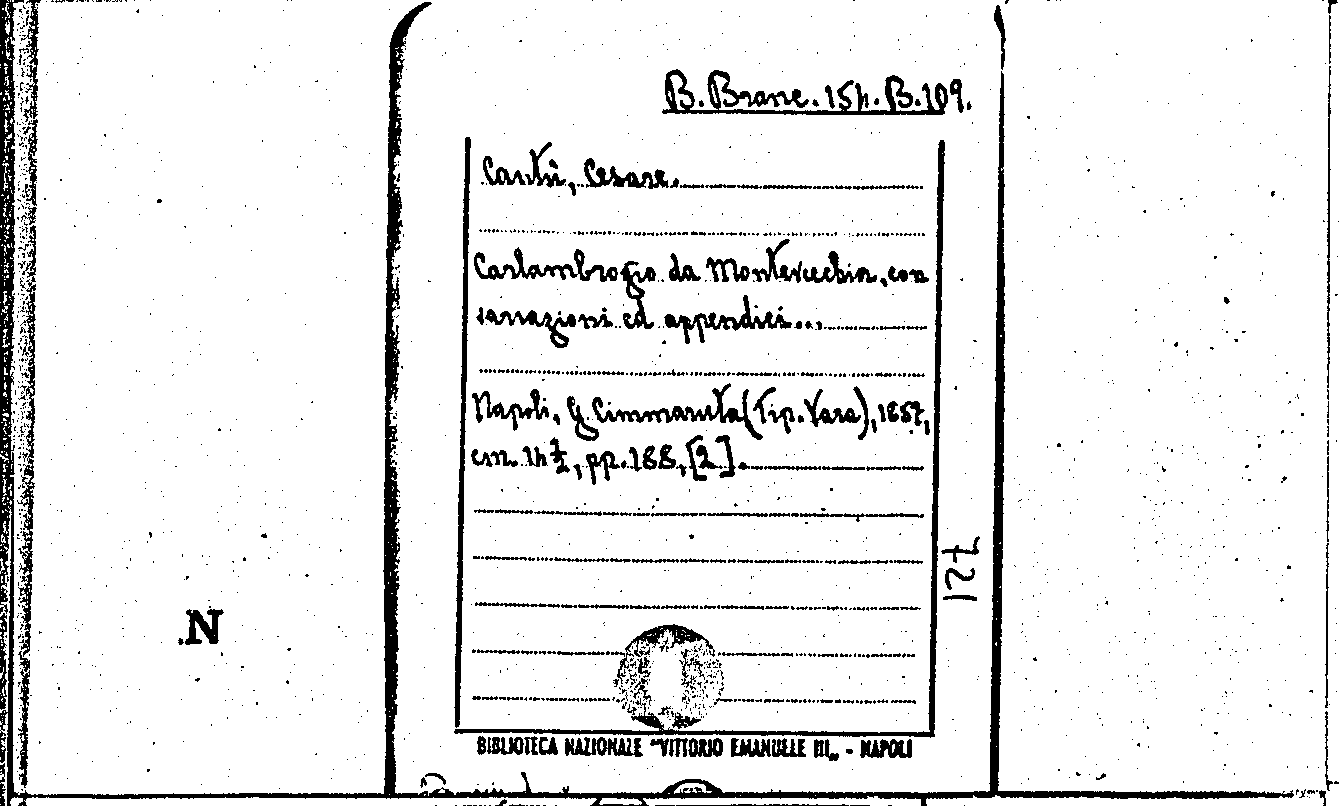 B. Branc. 154. B. 109.
Cantù, Cesare.
Carlambrogio da Montevecchia, con
variazioni ed appendici...
Napoli, G. Cimmaruta (Tip. Vara), 1857,
cm. 14 ½, pp. 188, [2].
721
N
BIBLIOTECA NAZIONALE "VITTORIO EMANUELE III„ - NAPOLI